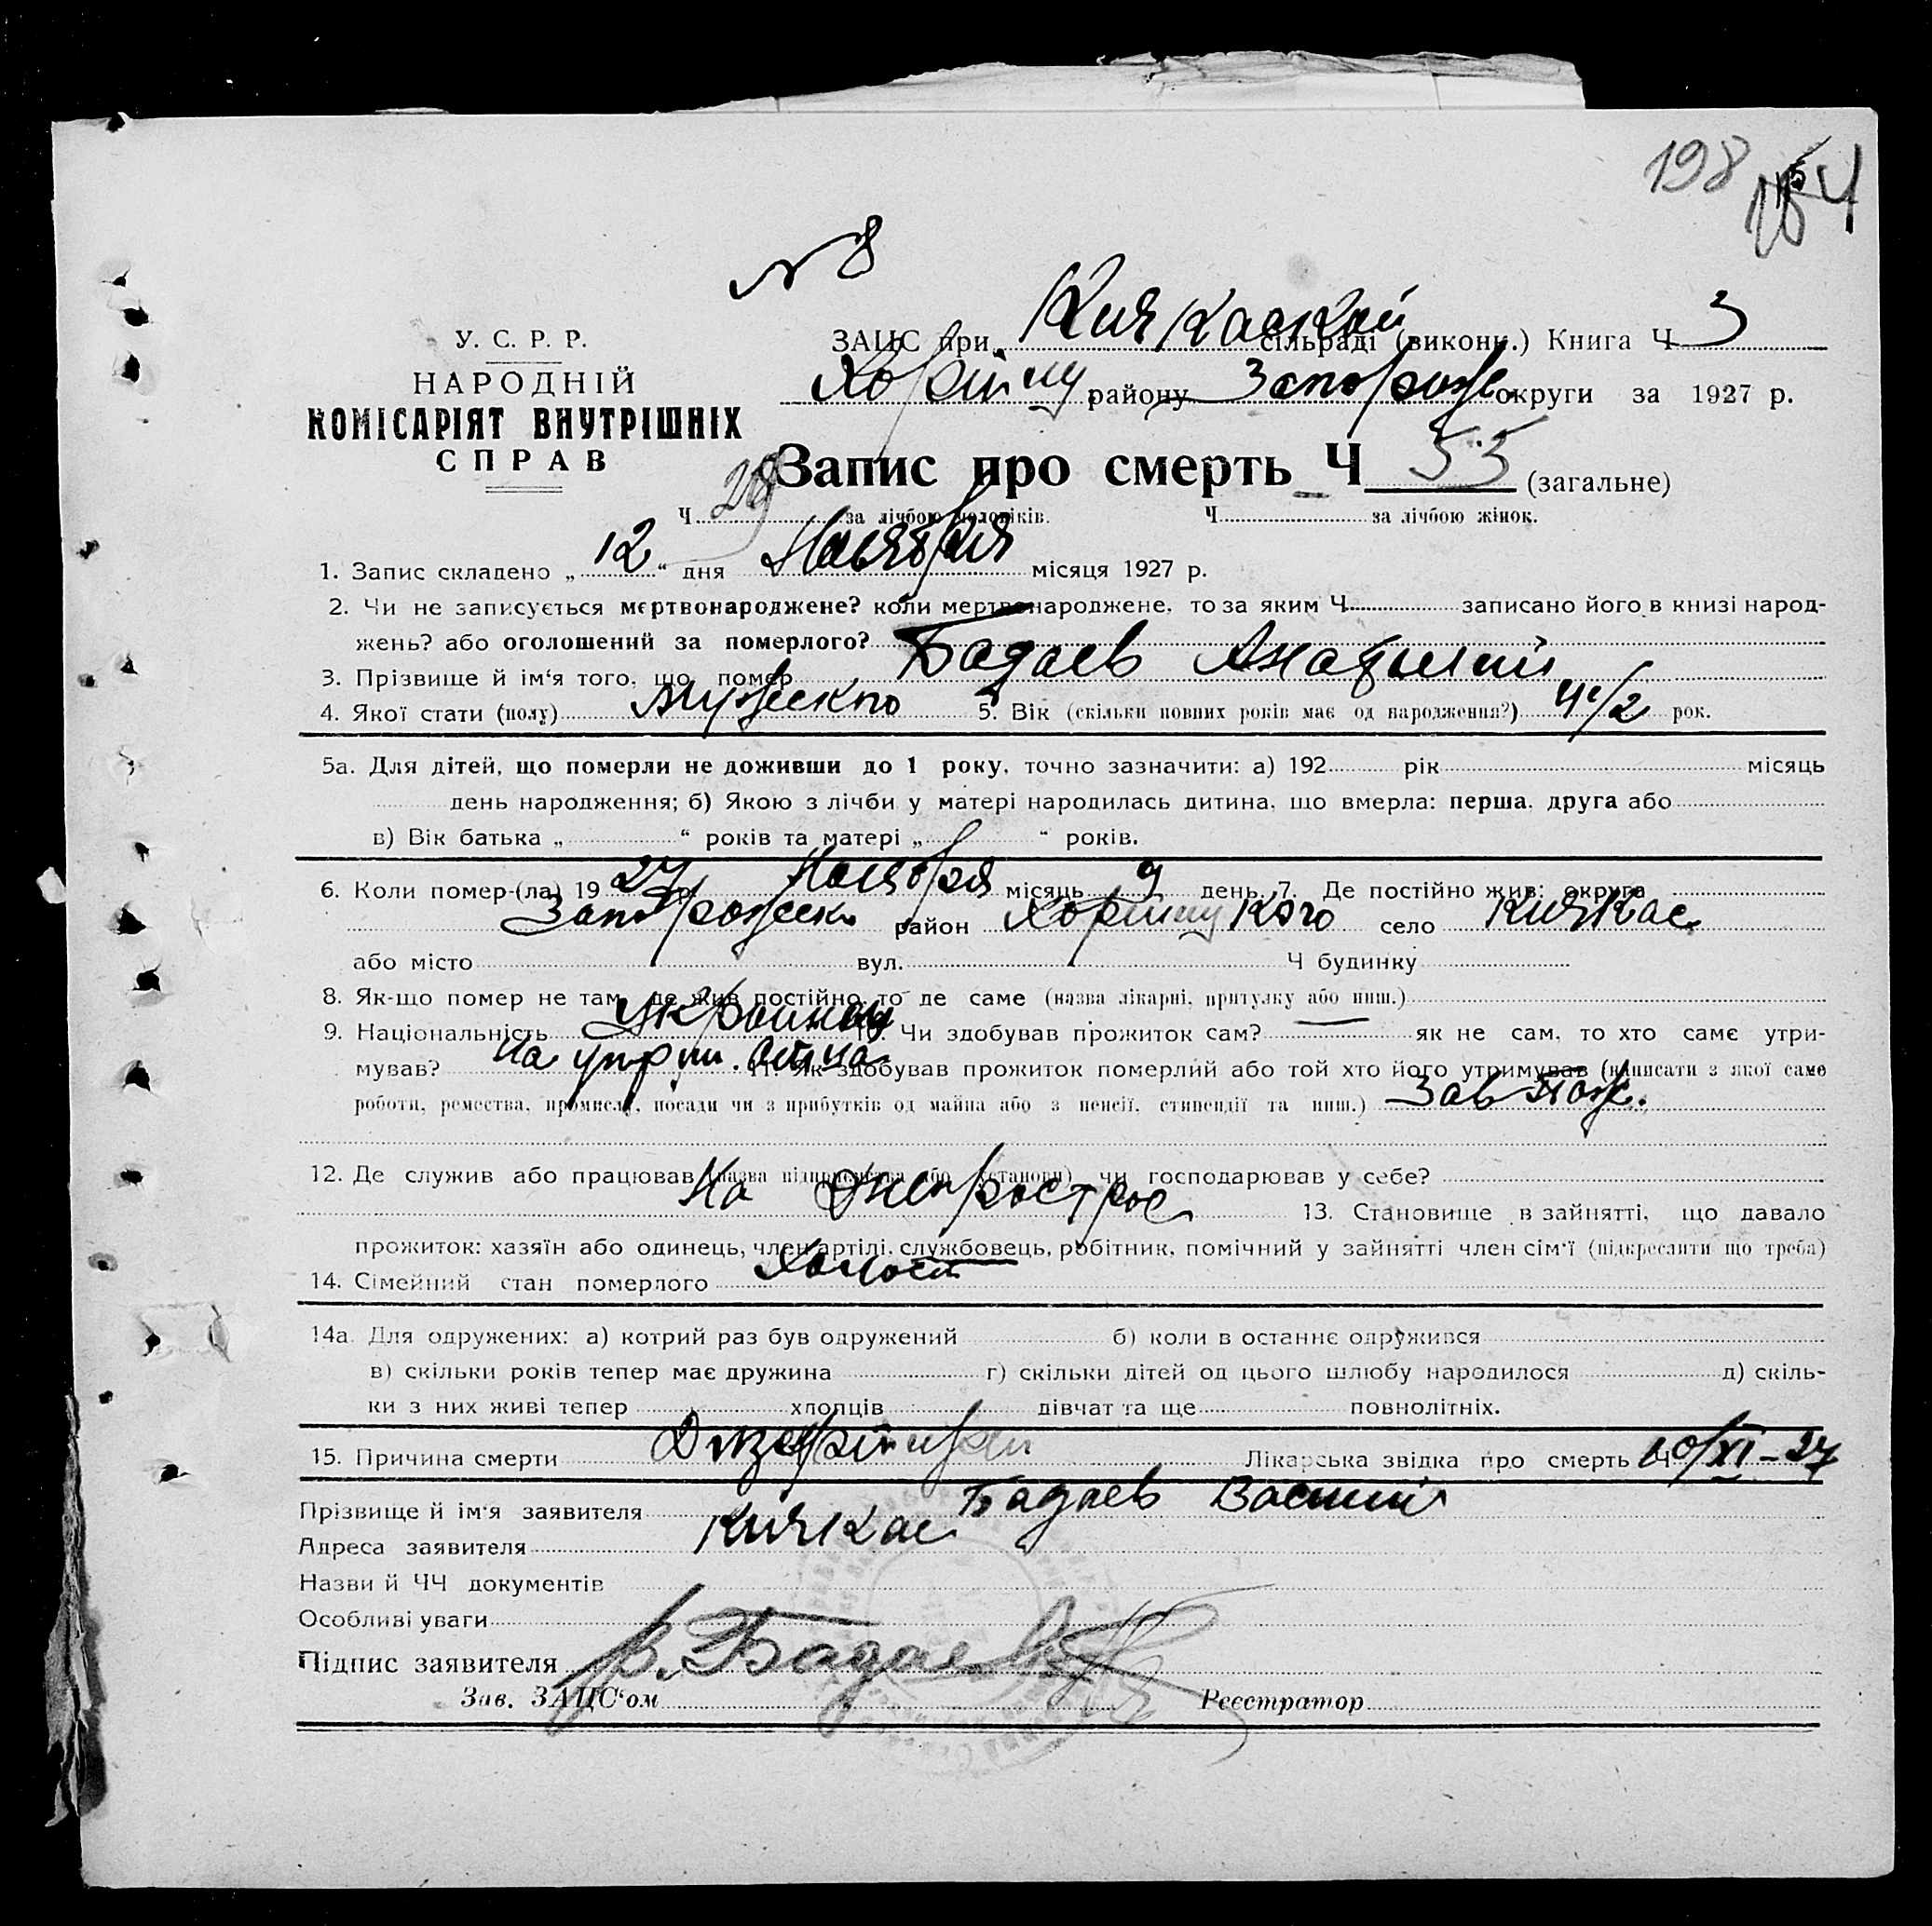 198
№ 8
У. С. Р. Р.
НАРОДНІЙ
КОМІСАРІЯТ ВНУТРІШНІХ
СПРАВ
ЗАЦС при Кичкаской сільраді (викони.) Книга Ч 3
району Запорож округи за 1927 р.
Запис про смерть Ч 55 (загальне)
Ч 28 за лічбою чоловіків. Ч за лічбою жінок.
1. Запис складено „ 12 “ дня Ноября місяця 1927 р.
2. Чи не записується мертвонароджене? коли мертвонароджене, то за яким Ч записано його в книзі народ-
жень? або оголошений за померлого?
3. Прізвище й ім‘я того, що помер Бадаев Анатолий
4. Якої стати (полу) 5. Вік (скільки повних років має од народження?) 4 1/2 рок.
5а. Для дітей, що померли не доживши до 1 року, точно зазначити: а) 192 рік місяць
день народження; б) Якою з лічби у матері народилась дитина, що вмерла: перша, друга або
в) Вік батька „ “ років та матері „ “ років.
6. Коли помер-(ла) 19 27 р. Ноября місяць 9 день 7. Де постійно жив: округа
район село Кичкас
або місто вул. Ч будинку
8. Як-що помер не там, де жив постійно, то де саме (назва лікарні, притулку або инш.)
9. Національність 10. Чи здобував прожиток сам? — як не сам, то хто саме утри-
мував? 11. Як здобував прожиток померлий або той хто його утримував (написати з якої саме
роботи, ремества, промисла, посади чи з прибутків од майна або з пенсії, стипендії та инш.)
12. Де служив або працював (назва підприємства або установи) чи господарював у себе?
На Днепрострое 13. Становище в зайнятті, що давало
прожиток: хазяїн або одинець, член артілі, службовець, робітник, помічний у зайнятті член сім‘ї (підкреслити що треба)
14. Сімейний стан померлого Холост
14а Для одружених: а) котрий раз був одружений б) коли в останнє одружився
в) скільки років тепер має дружина г) скільки дітей од цього шлюбу народилося д) скіль-
ки з них живі тепер хлопців дівчат та ще повнолітніх.
15. Причина смерти Лікарська звідка про смерть Ч 10/XI-27
Прізвище й ім‘я заявителя Бадаев Василий
Адреса заявителя Кичкас
Назви й ЧЧ документів
Особливі уваги
Підпис заявителя В. Бадаев
Зав. ЗАЦС‘ом Реєстратор